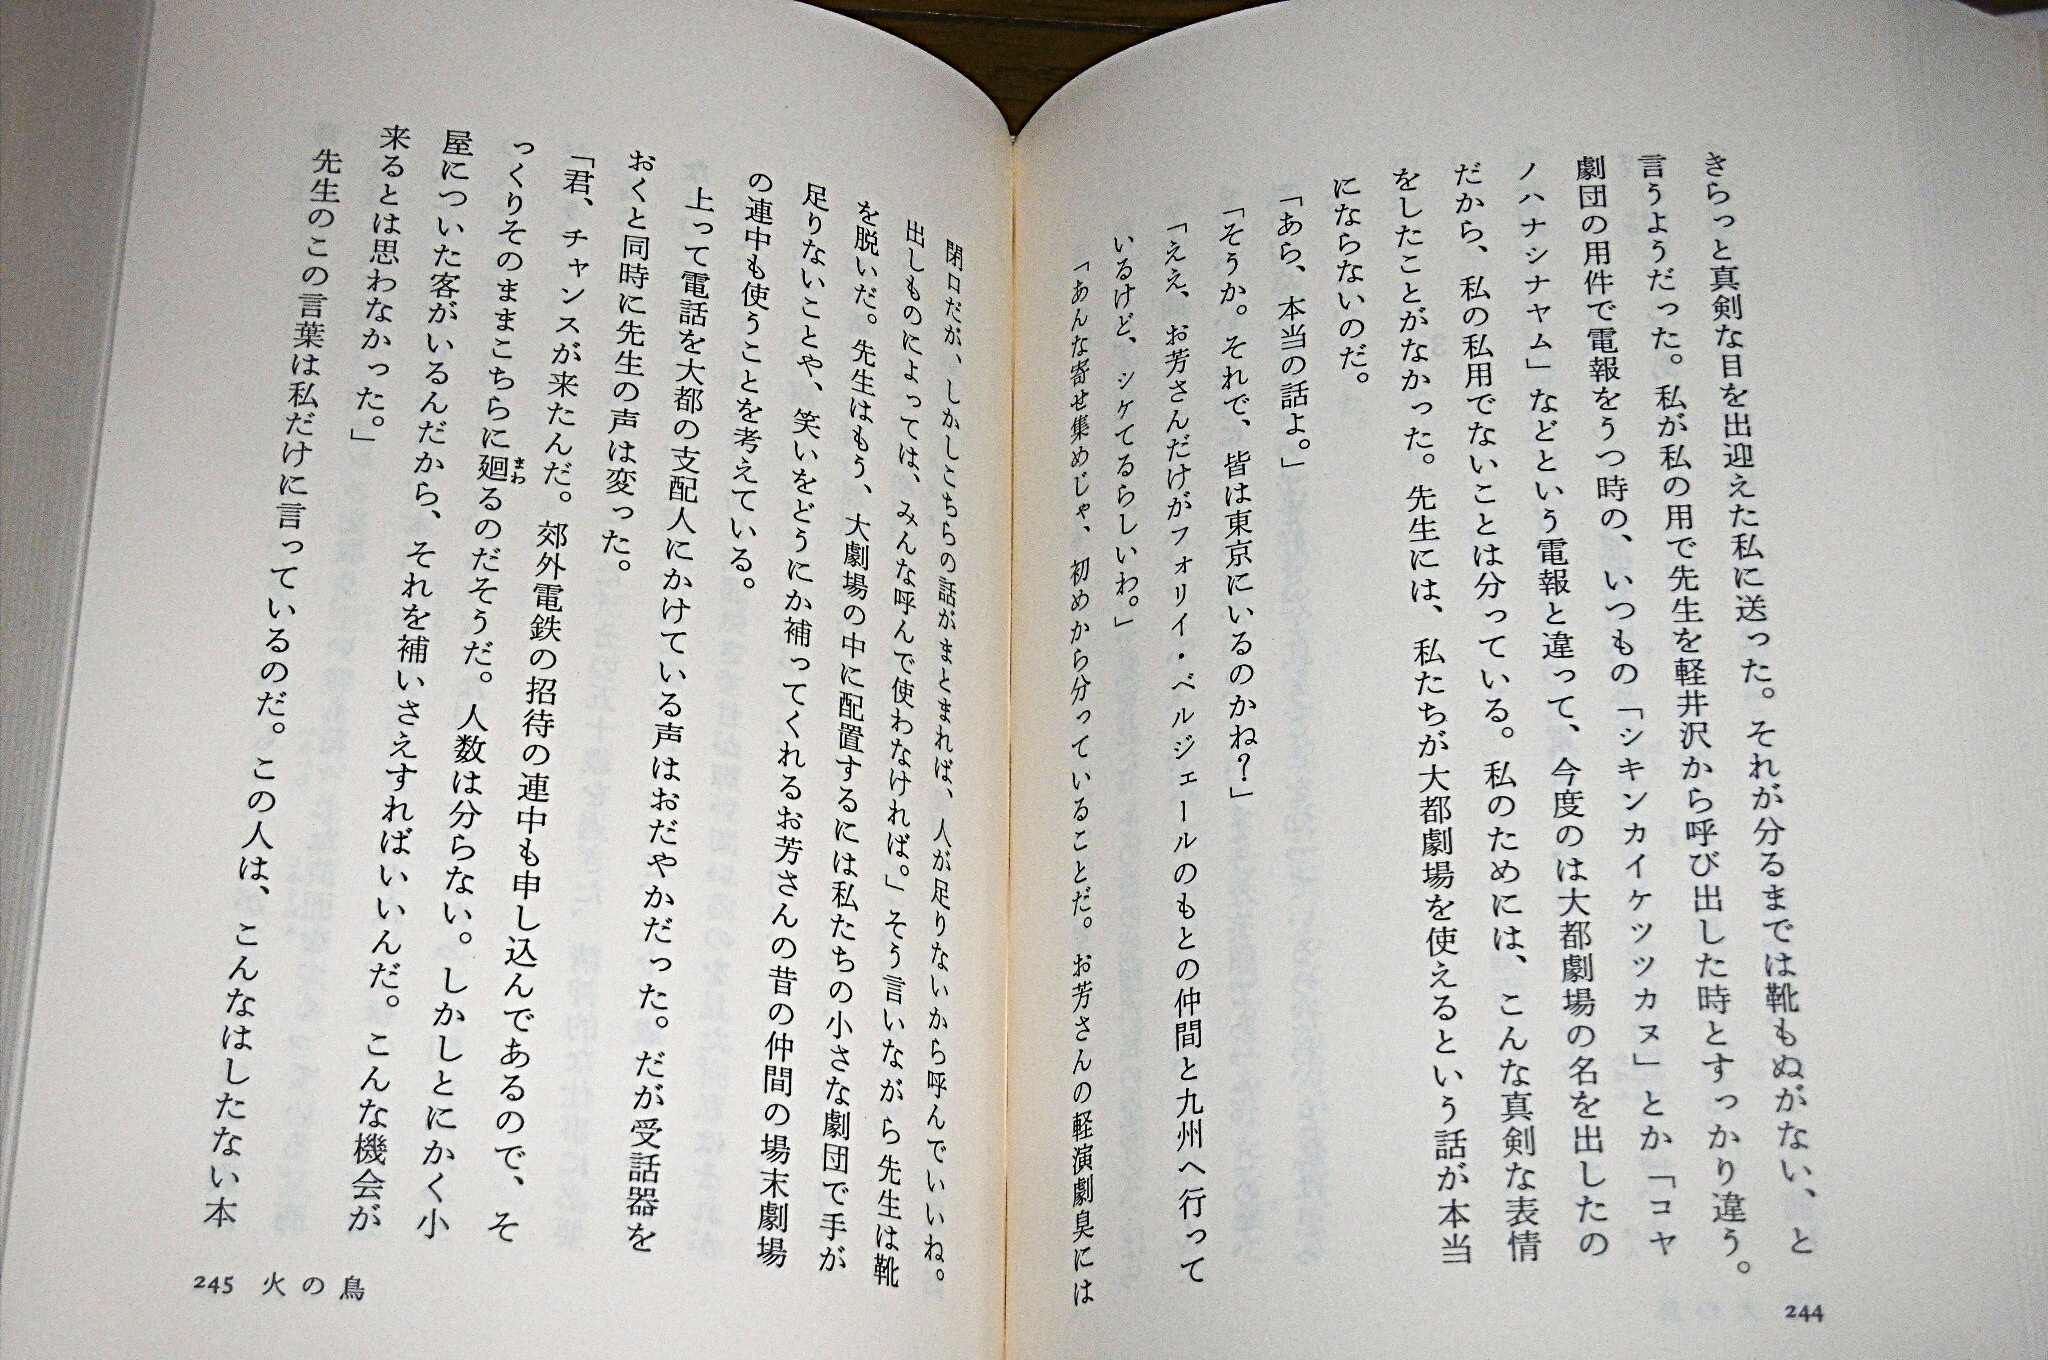 きらっと真剣な目を出迎えた私に送った。それが分るまでは靴もぬがない、と
言うようだった。私が私の用で先生を軽井沢から呼び出した時とすっかり違う。
劇団の用件で電報をうつ時の、いつもの「シキンカイケツツカヌ」とか「コヤ
ノハナシナヤム」などという電報と違って、今度のは大都劇場の名を出したの
だから、私の私用でないことは分っている。私のためには、こんな真剣な表情
をしたことがなかった。先生には、私たちが大都劇場を使えるという話が本当
にならないのだ。
「あら、本当の話よ。」
「そうか。それで、皆は東京にいるのかね？」
「ええ、お芳さんだけがフォリイ・ベルジェールのもとの仲間と九州へ行って
いるけど、シケてるらしいわ。」
「あんな寄せ集めじゃ、初めから分っていることだ。お芳さんの軽演劇臭には
244
閉口だが、しかしこちらの話がまとまれば、人が足りないから呼んでいいね。
出しものによっては、みんな呼んで使わなければ。」そう言いながら先生は靴
を脱いだ。先生はもう、大劇場の中に配置するには私たちの小さな劇団で手が
足りないことや、笑いをどうにか補ってくれるお芳さんの昔の仲間の場末劇場
の連中も使うことを考えている。
上って電話を大都の支配人にかけている声はおだやかだった。だが受話器を
おくと同時に先生の声は変った。
「君、チャンスが来たんだ。郊外電鉄の招待の連中も申し込んであるので、そ
っくりそのままこちらに廻るのだそうだ。人数は分らない。しかしとにかく小
まわ
屋についた客がいるんだから、それを補いさえすればいいんだ。こんな機会が
来るとは思わなかった。」
先生のこの言葉は私だけに言っているのだ。この人は、こんなはしたない本
245 火の鳥